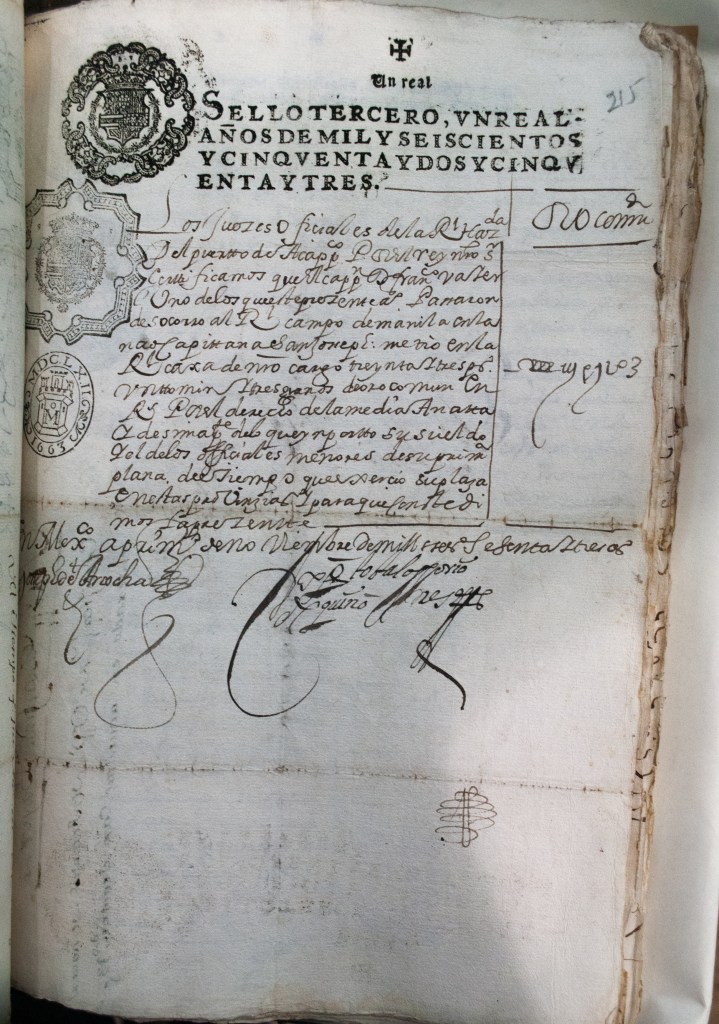 Un real
215
SELLO TERCERO, VN REAL,
AÑOS DE MIL Y SEISCIENTOS
Y CINQVENTA Y DOS Y CINQV
ENTA Y TRES.
Los Juezes Officiales de la Rl. Hazda
Oro Comun
Del puerto de Acapco Por el rey nro sr
Certificamos que el cappn D franco
Uno de los que este presente año Pasaron
de socorro al Rl campo de manila en la
nao capitana San Joseph metio en la
Rl caxa de nro cargo treynta y tres ps
un tomin y tres granos de oro comun En
Rs Por el derecho de la media Anatta
y desima del que ynporto su sueldo
y el de los officiales menores de su prima
plana, del tiempo que exercio su plaza
en estas provinzias Y para que conste di
mos la presente
En Mexco a primo de noviembre de mill y ses y Sesenta y tres as
MDCLXII
1663